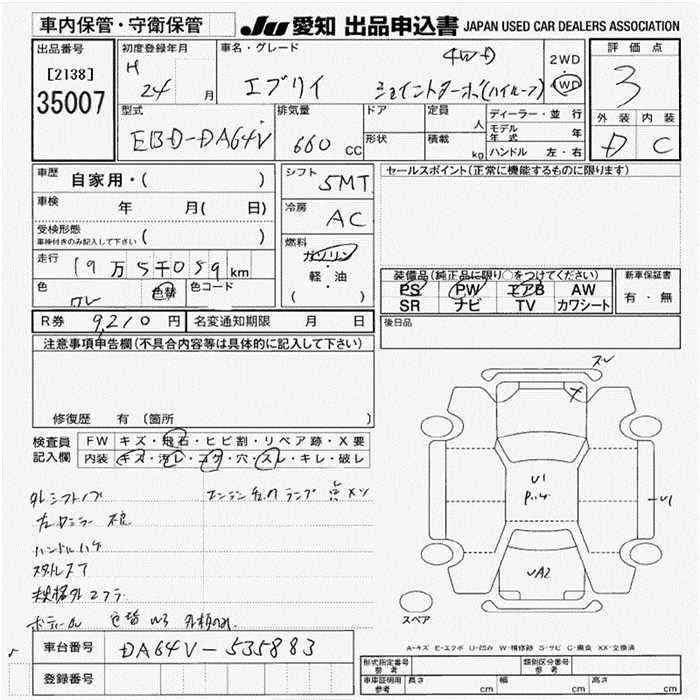 車内保管・守衛保管
JU 愛知 出品申込書 JAPAN USED CAR DEALERS ASSOCIATION
出品番号
[2138]
35007
初度登録年月
H
24 月
車名・グレード
エブリイ
4WD
ジョイントターボ(ハイルーフ)
2WD
4WD
評価点
3
外装 内装
D C
型式
EBD-DA64V
排気量
660 CC
ドア
形状
定員 人
積載 kg
ディーラー・並行
モデル年式 年
ハンドル 左・右
車歴 自家用・( )
車検 年 月( 日)
受検形態
車検付きのみ記入して下さい ( )
走行 19万5千059km
色 色替 色コード
シフト 5MT
冷房 AC
燃料
ガソリン
軽・油
( )
セールスポイント(正常に機能するものに限ります)
装備品(純正品に限り○をつけてください)
PS PW エアB AW
SR ナビ TV カワシート
新車保証書
有・無
後日品
R券 9,210円
名変通知期限 月 日
注意事項申告欄(不具合内容等は具体的に記入して下さい)
修復歴 有 (箇所 )
検査員記入欄
FW キズ・飛石・ヒビ割・リペア跡・X要
内装 キズ・汚レ・コゲ・穴・スレ・キレ・破レ
エンジンチェックランプ
左ドアミラー 不良
ハンドルハゲ
規格外
U1
ハゲ
U1
UA2
X
スペア
車台番号 DA64V-535883
登録番号
A-キズ E-エクボ U-凹み W-補修跡 S-サビ C-腐食 XX-交換済
形式指定番号 参考
類別区分番号 参考
車庫証明用 参考 長さ cm 幅 cm 高さ cm